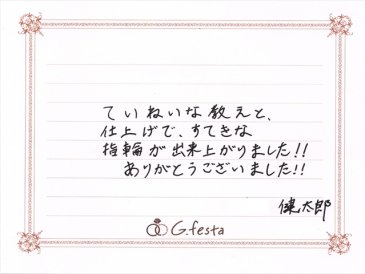 ていねいな教えと、
仕上げで、すてきな
指輪が出来上がりました!!
ありがとうございました!!
健太郎
G.festa